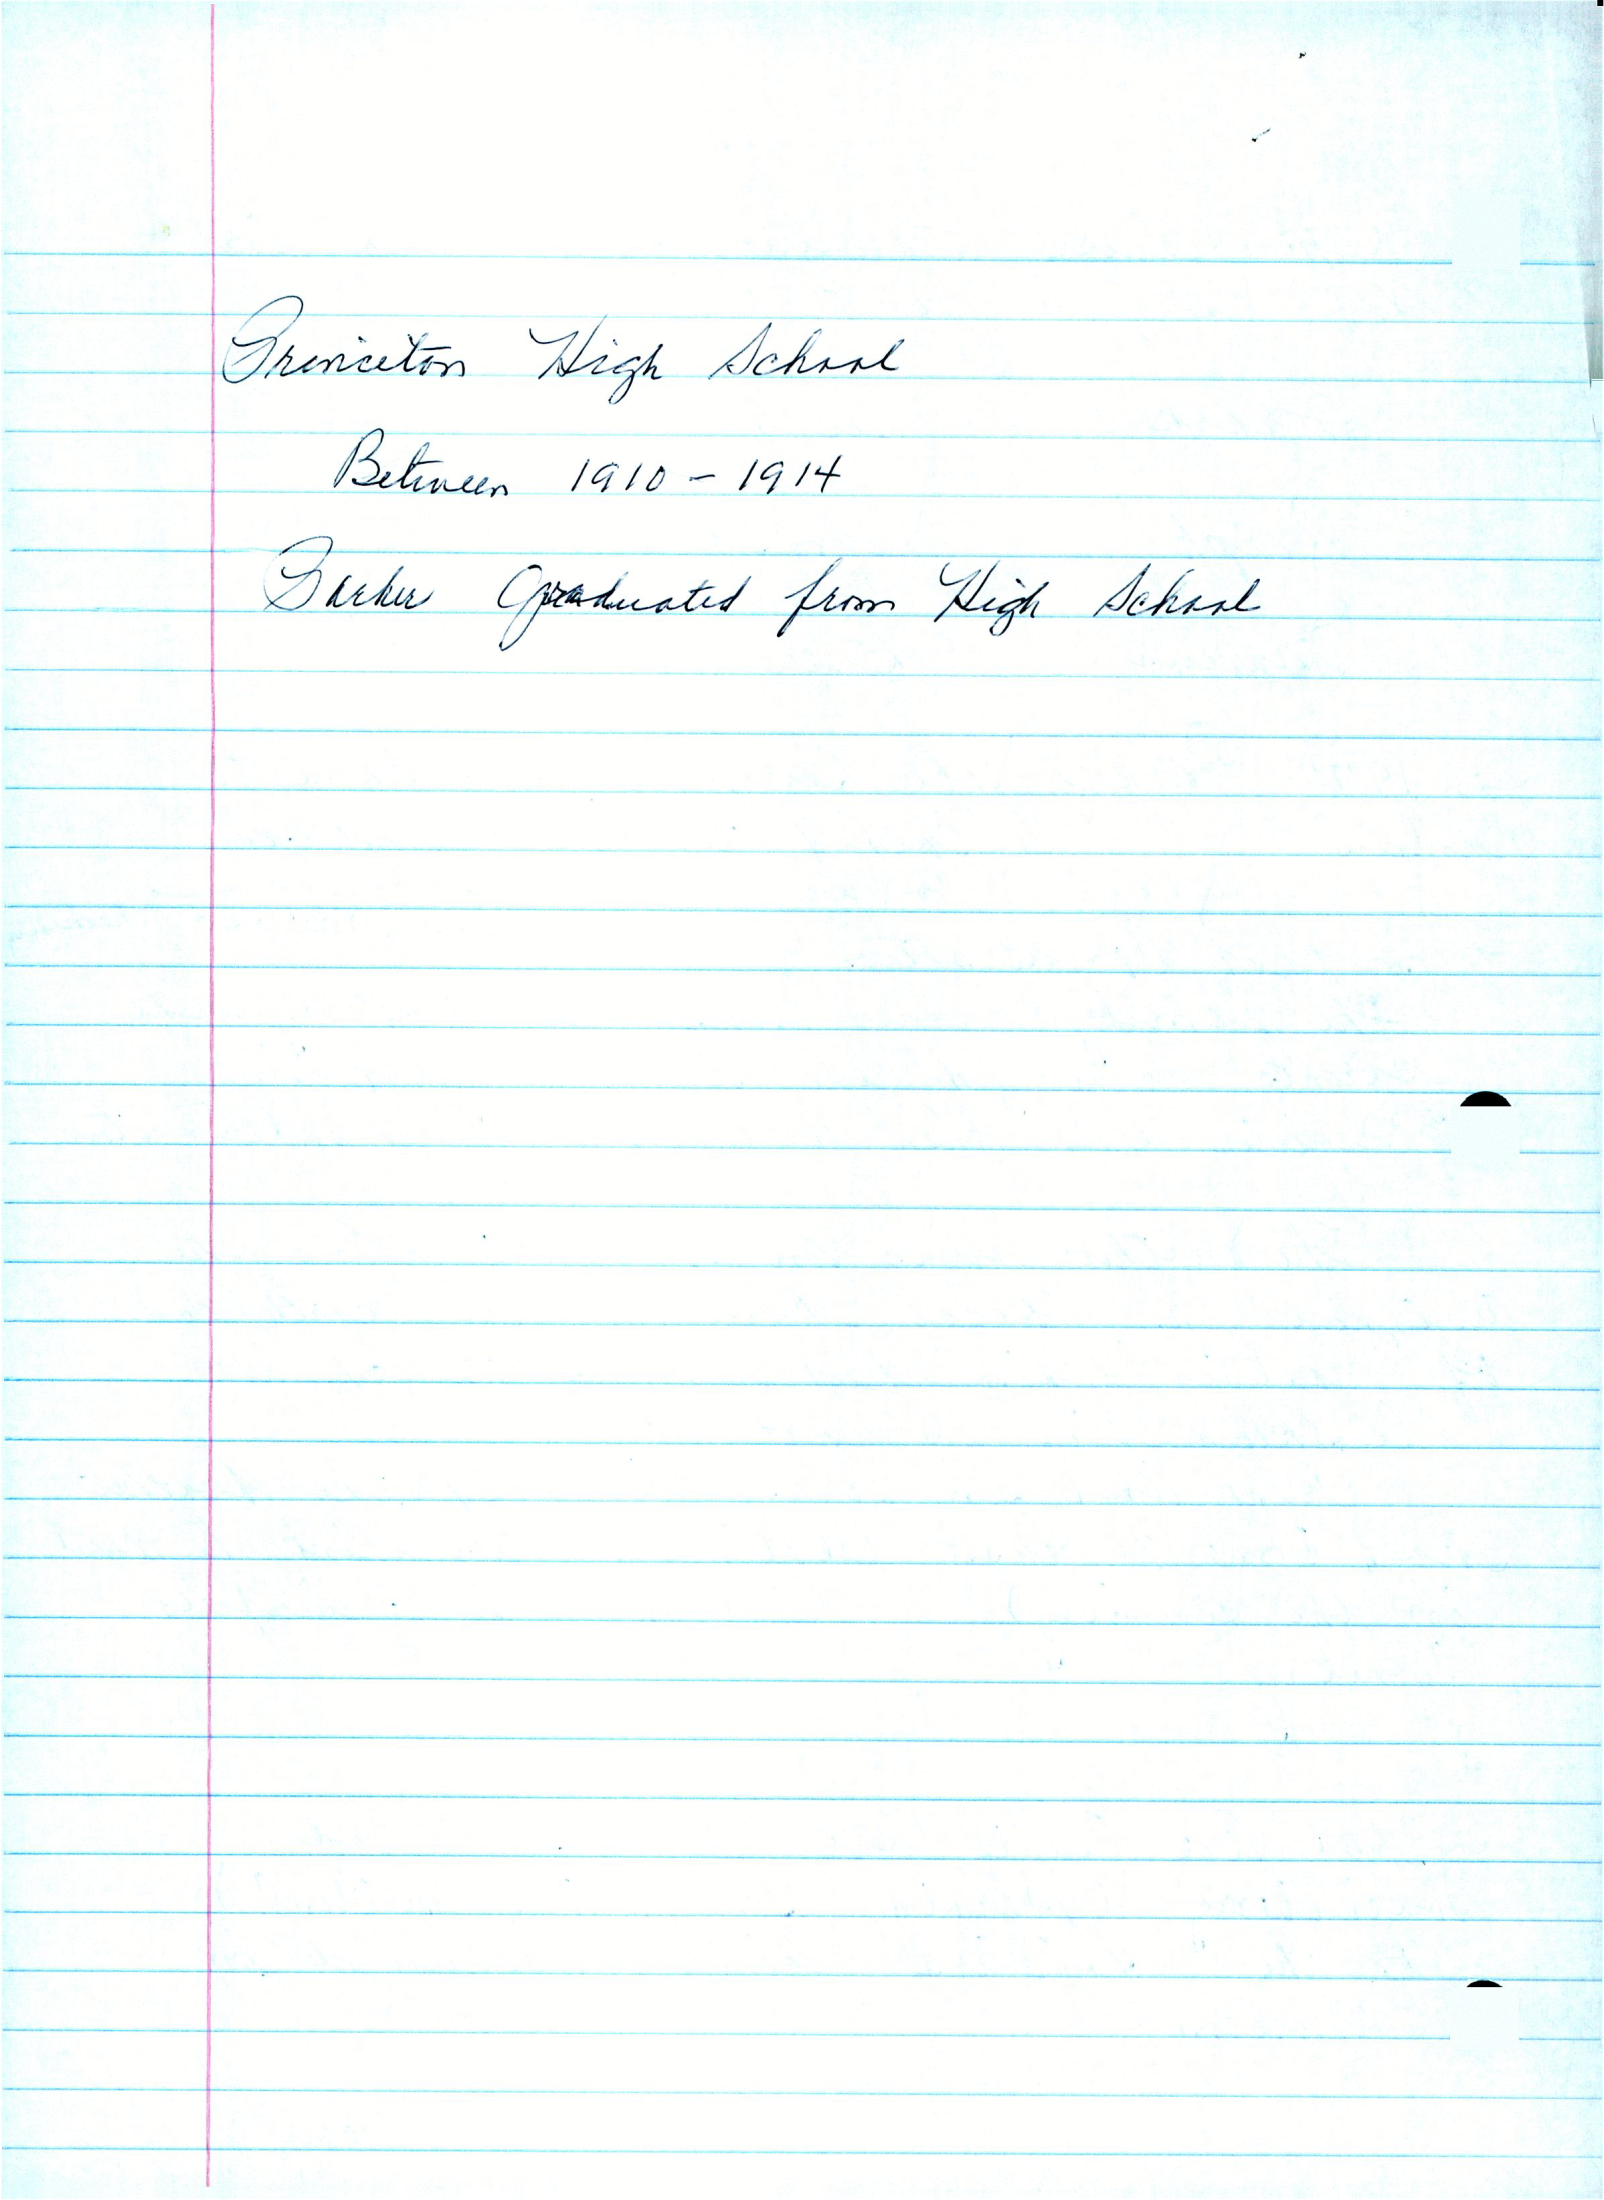 Princeton High School
Between 1910 - 1914
Parker Graduated from High School